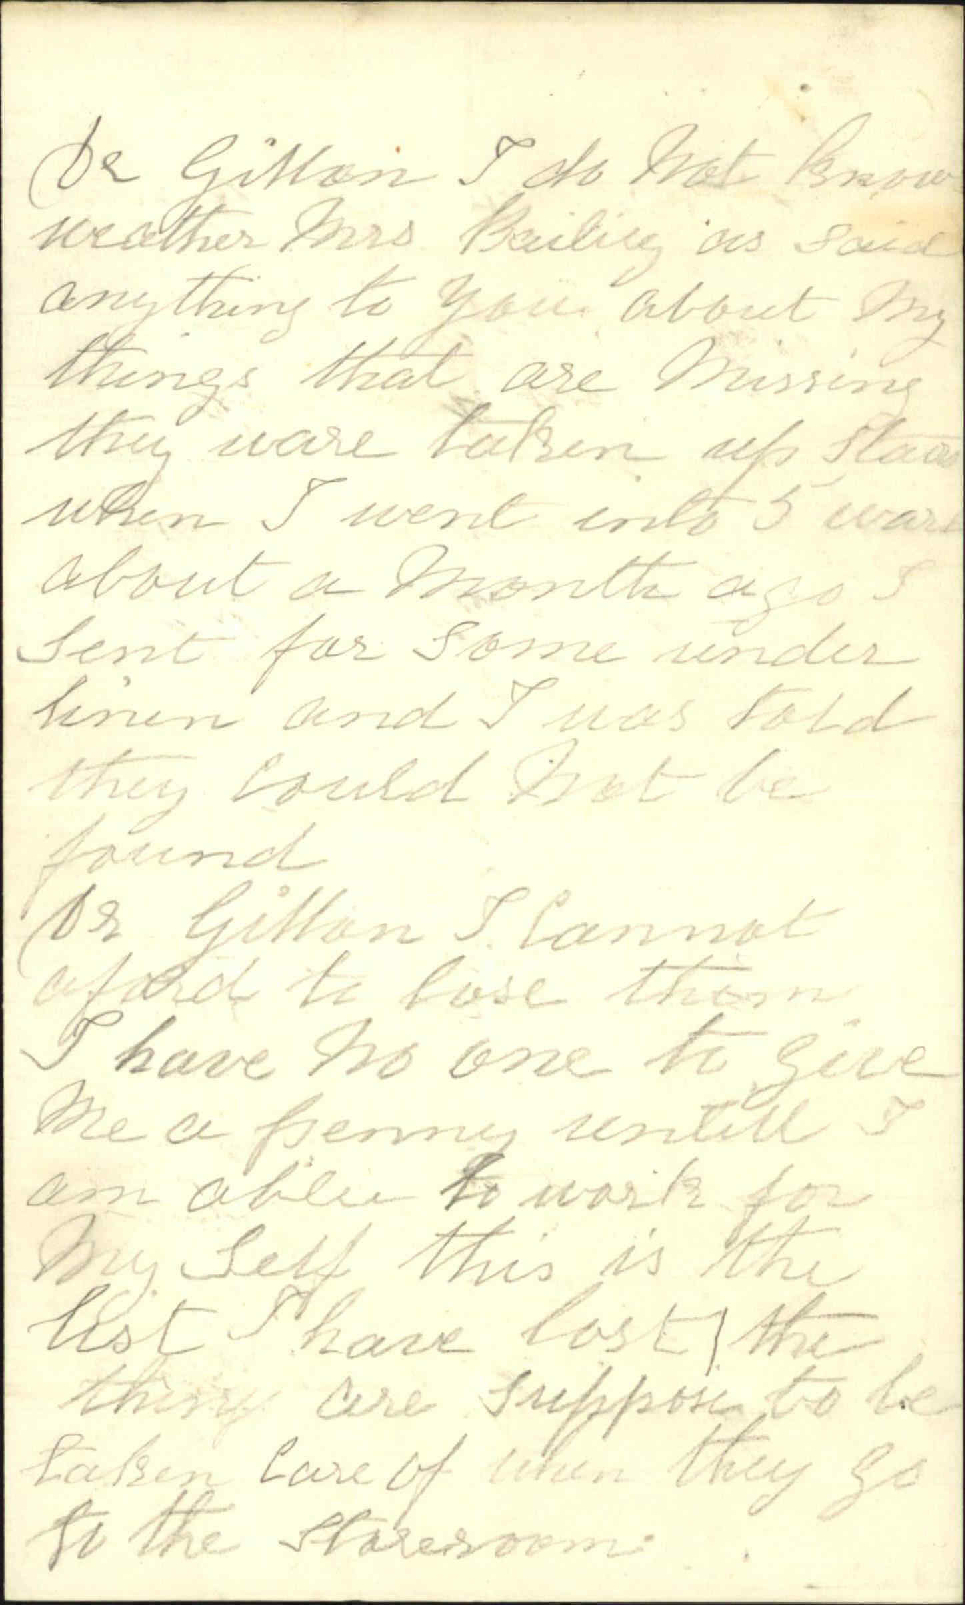 Dr Gillon I do Not Know
weather Mrs Bailey as said
anything to you about My
things that are Missing
they ware taken up Stairs
when I went into 5 ward
about a Month ago I
Sent for Some under
linen and I was told
they Could Not be
found
Dr Gillon I Cannot
aford to lose them
I have No one to give
Me a penny untill I
am able to work for
My Self this is the
list I have lost the
things are suppose to be
taken Care of when they go
to the Storeroom